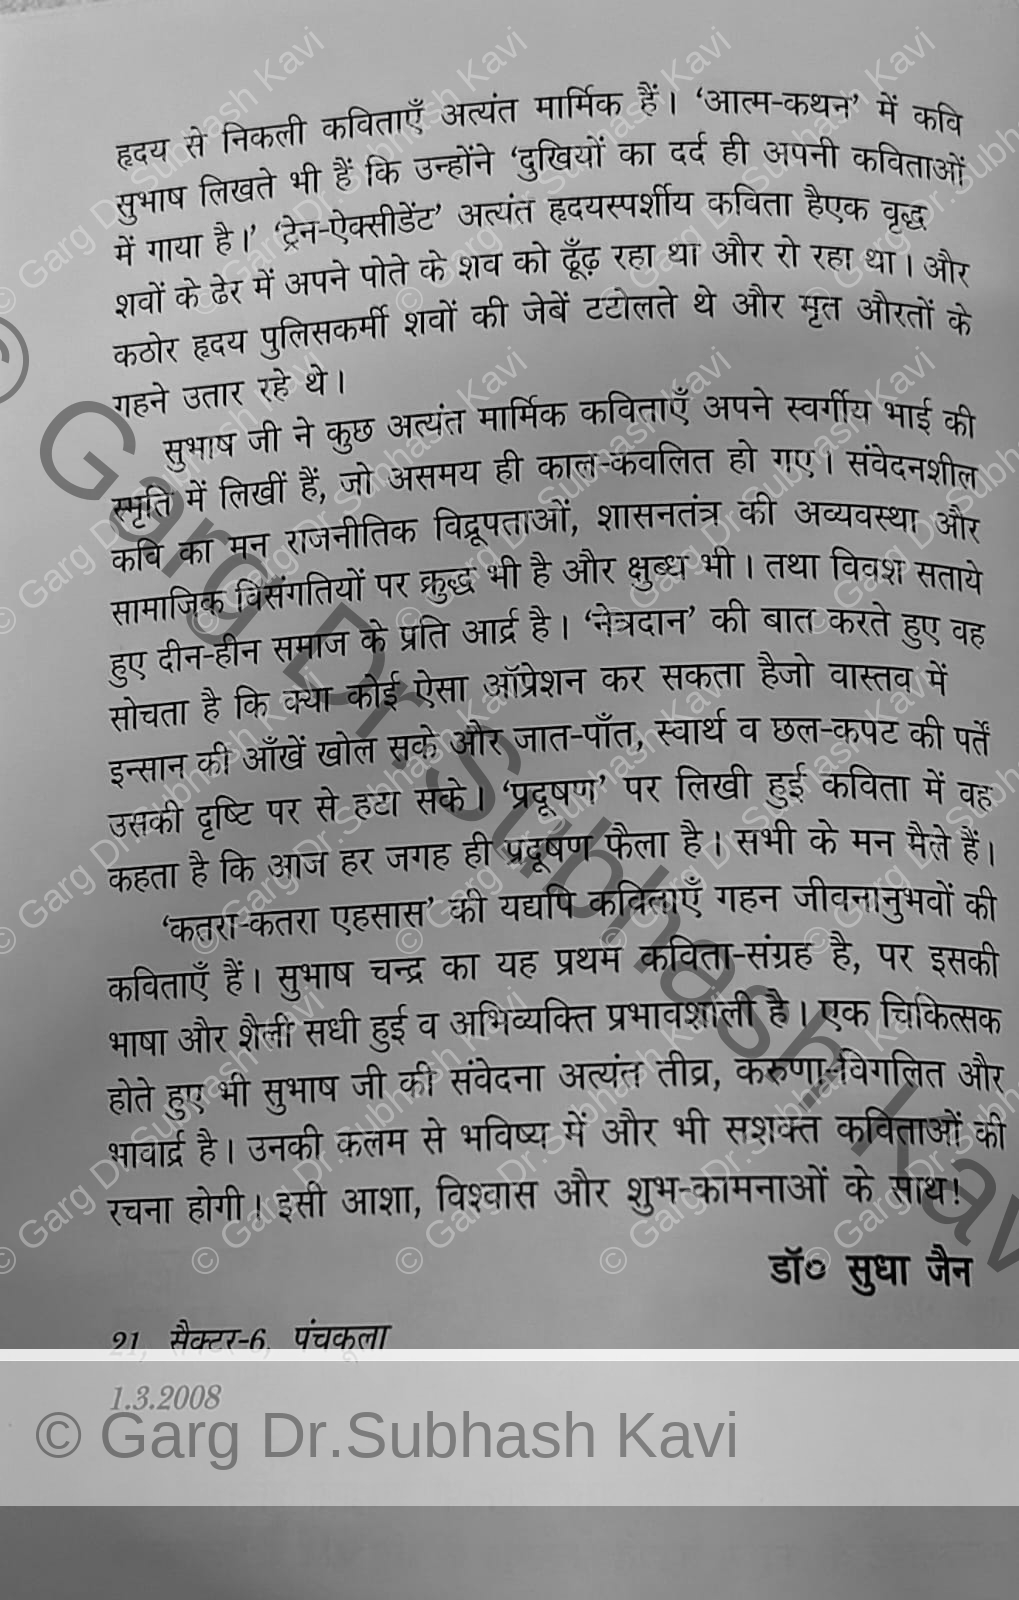 हृदय से निकली कविताएँ अत्यंत मार्मिक हैं। ‘आत्म-कथन’ में कवि
सुभाष लिखते भी हैं कि उन्होंने ‘दुखियों का दर्द ही अपनी कविताओं
में गाया है।’ ‘ट्रेन-ऐक्सीडेंट’ अत्यंत हृदयस्पर्शीय कविता हैएक वृद्ध
शवों के ढेर में अपने पोते के शव को ढूँढ़ रहा था और रो रहा था। और
कठोर हृदय पुलिसकर्मी शवों की जेबें टटोलते थे और मृत औरतों के
गहने उतार रहे थे।
सुभाष जी ने कुछ अत्यंत मार्मिक कविताएँ अपने स्वर्गीय भाई की
स्मृति में लिखीं हैं, जो असमय ही काल-कवलित हो गए। संवेदनशील
कवि का मन राजनीतिक विद्रूपताओं, शासनतंत्र की अव्यवस्था और
सामाजिक विसंगतियों पर क्रुद्ध भी है और क्षुब्ध भी। तथा विवश सताये
हुए दीन-हीन समाज के प्रति आर्द्र है। ‘नेत्रदान’ की बात करते हुए वह
सोचता है कि क्या कोई ऐसा ऑप्रेशन कर सकता हैजो वास्तव में
इन्सान की आँखें खोल सके और जात-पाँत, स्वार्थ व छल-कपट की पर्तें
उसकी दृष्टि पर से हटा सके। ‘प्रदूषण’ पर लिखी हुई कविता में वह
कहता है कि आज हर जगह ही प्रदूषण फैला है। सभी के मन मैले हैं।
‘कतरा-कतरा एहसास’ की यद्यपि कविताएँ गहन जीवनानुभवों की
कविताएँ हैं। सुभाष चन्द्र का यह प्रथम कविता-संग्रह है, पर इसकी
भाषा और शैली सधी हुई व अभिव्यक्ति प्रभावशाली है। एक चिकित्सक
होते हुए भी सुभाष जी की संवेदना अत्यंत तीव्र, करुणा-विगलित और
भावार्द्र है। उनकी कलम से भविष्य में और भी सशक्त कविताओं की
रचना होगी। इसी आशा, विश्वास और शुभ-कामनाओं के साथ!
डॉ० सुधा जैन
21, सैक्टर-6, पंचकूला
1.3.2008
© Garg Dr.Subhash Kavi